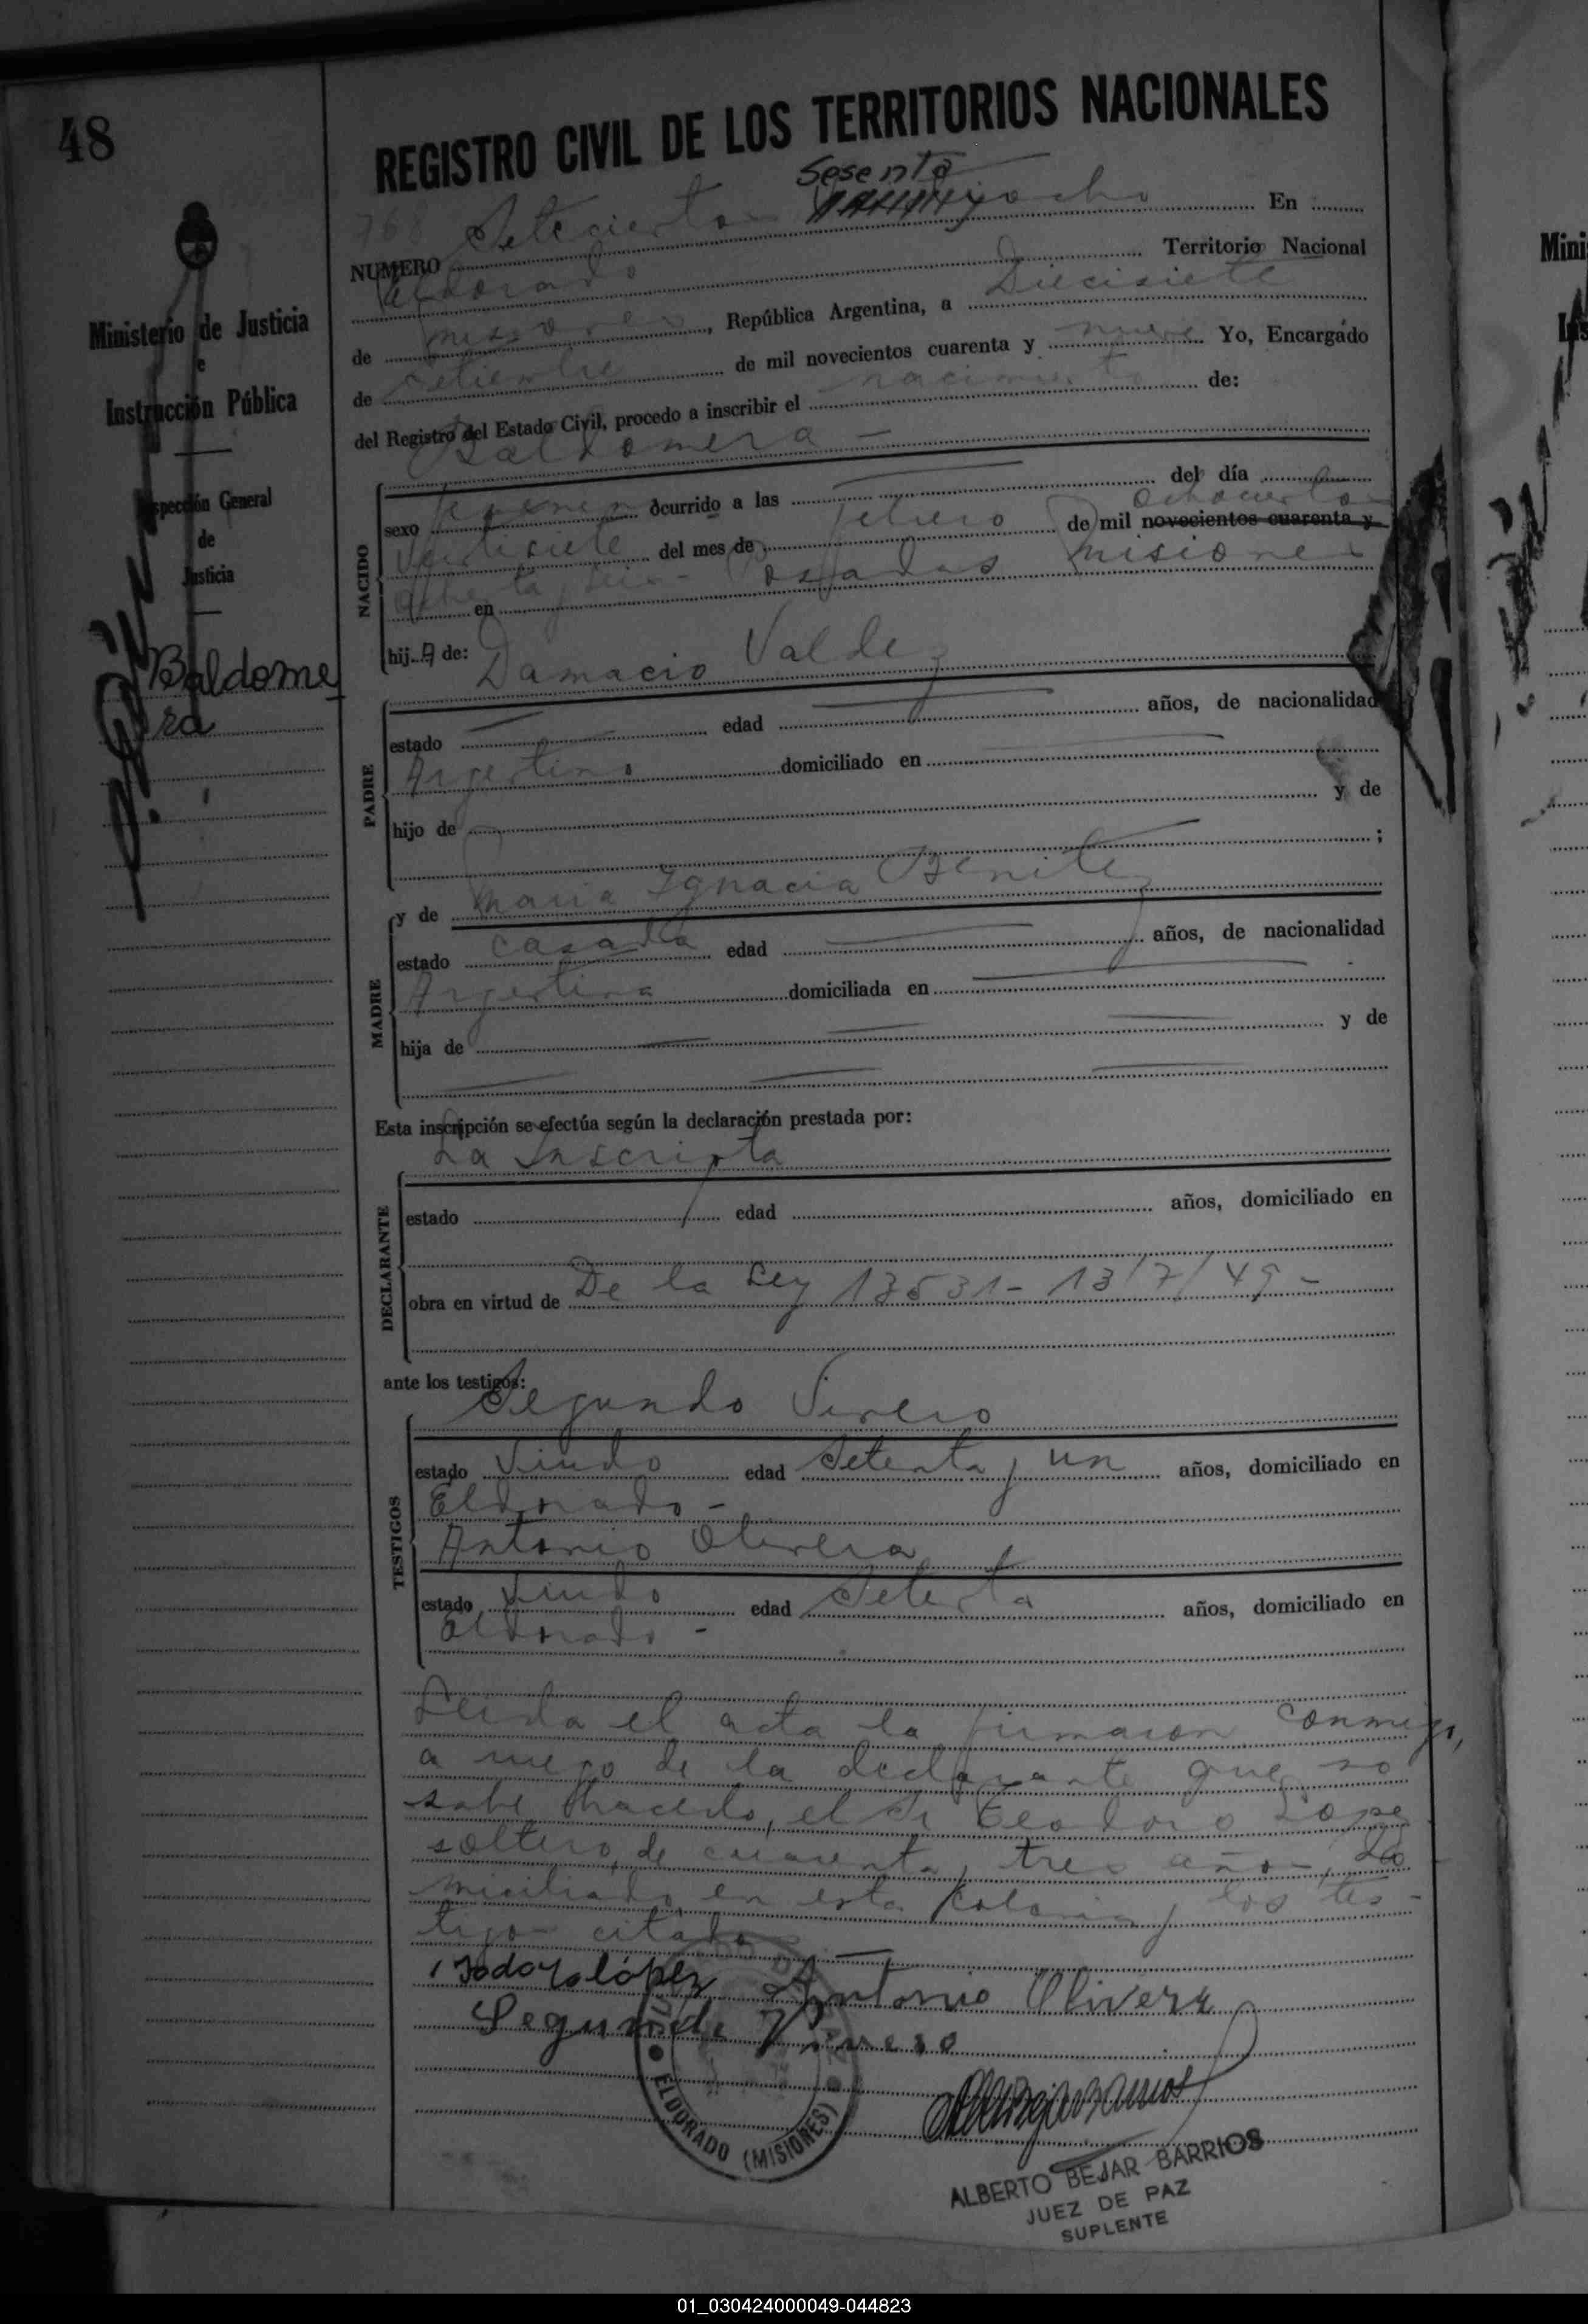 48
REGISTRO CIVIL DE LOS TERRITORIOS NACIONALES
Sesenta
768
NUMERO Setecientos y ocho En
Eldorado Territorio Nacional
de Misiones, República Argentina, a Diecisiete
de setiembre de mil novecientos cuarenta y nueve Yo, Encargado
del Registro del Estado Civil, procedo a inscribir el nacimiento de:
Baldomera -
Ministerio de Justicia
e
Instrucción Pública
Inspección General
de
Justicia
Baldome
ra
NACIDO
sexo femenino ocurrido a las del día
ochocientos
Veintisiete del mes de febrero de mil novecientos cuarenta y
ochenta y seis - en Posadas Misiones
hija de: Damacio Valdez
PADRE
estado edad años, de nacionalidad
Argentino domiciliado en
hijo de y de
;
MADRE
y de Maria Ignacia Benitez
estado casada edad años, de nacionalidad
Argentina domiciliada en
hija de y de
Esta inscripción se efectúa según la declaración prestada por:
La Inscripta
DECLARANTE
estado edad años, domiciliado en
obra en virtud de De la Ley 13531- 13/7/49 -
ante los testigos:
TESTIGOS
Segundo
estado Viudo edad Setenta y un años, domiciliado en
Eldorado -
Antonio Olivera
estado Viudo edad Setenta años, domiciliado en
Eldorado -
Leida el acta la firmaron conmigo,
a ruego de la declarante que no
sabe hacerlo, el Sr Teodoro Lopez
soltero, de cuarenta y tres años, do
miciliado en esta Colonia y los tes-
tigos citados
López Antonio Olivera
Segundo
ELDORADO (MISIONES)
ALBERTO BEJAR BARRIOS
JUEZ DE PAZ
SUPLENTE
Mini
01_030424000049-044823